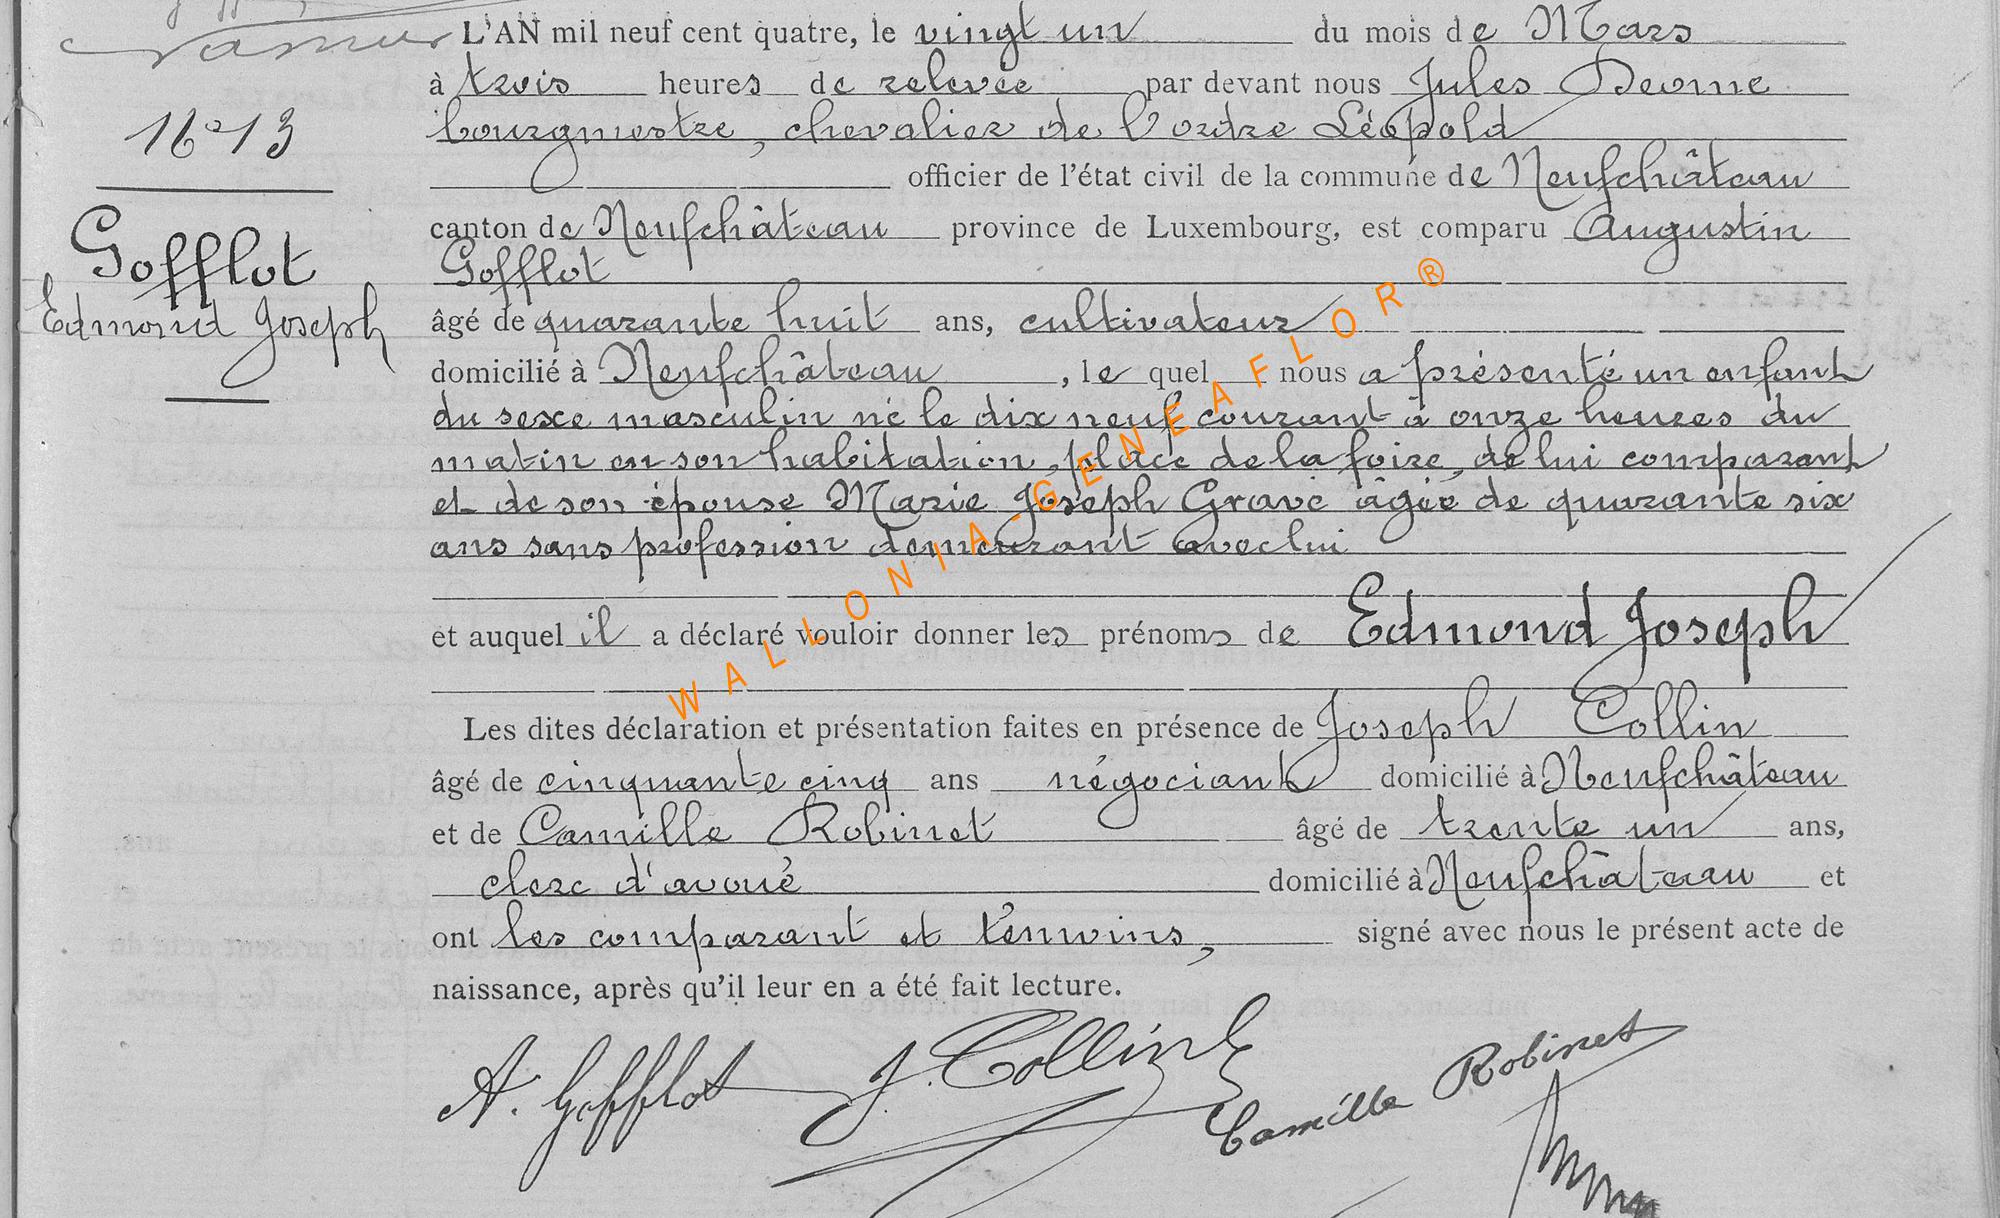 L'AN mil neuf cent quatre, le vingt un du mois de Mars
à trois heures de relevée par devant nous Jules Deome
bourgmestre, chevalier de l'ordre Léopold
officier de l'état civil de la commune de Neufchâteau
canton de Neufchâteau province de Luxembourg, est comparu Augustin
Gofflot
âgé de quarante huit ans, cultivateur
domicilié à Neufchâteau, le quel nous a présenté un enfant
du sexe masculin né le dix neuf courant à onze heures du
matin en son habitation, place de la foire, de lui comparant
et de son épouse Marie Joseph Gravé âgée de quarante six
ans sans profession demeurant avec lui
et auquel il a déclaré vouloir donner les prénoms de Edmond Joseph
Les dites déclaration et présentation faites en présence de Joseph Collin
âgé de cinquante cinq ans négociant domicilié à Neufchâteau
et de Camille Robinet âgé de trente un ans,
clerc d'avoué domicilié à Neufchâteau et
ont les comparant et témoins, signé avec nous le présent acte de
naissance, après qu'il leur en a été fait lecture.
A. Gofflot J. Collin Camille Robinet
Namur
No 13
Gofflot
Edmond Joseph
WALLONIA-GENEAFLOR®